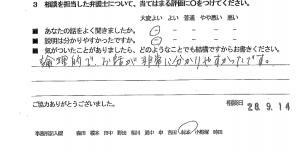 3 相談を担当した弁護士について、当てはまる評価に○をつけてください。
大変よい よい 普通 やや悪い 悪い
■ あなたの話をよく聞きましたか。 ○ － － － －
■ 説明は分かりやすかったですか。 ○ － － － －
■ 気がついたことがありましたら、どのようなことでも結構ですからお書きください。
論理的で、お話が非常に分かりやすかったです。
ご協力ありがとうございました。
相談日 28.9.14
事務所記入欄